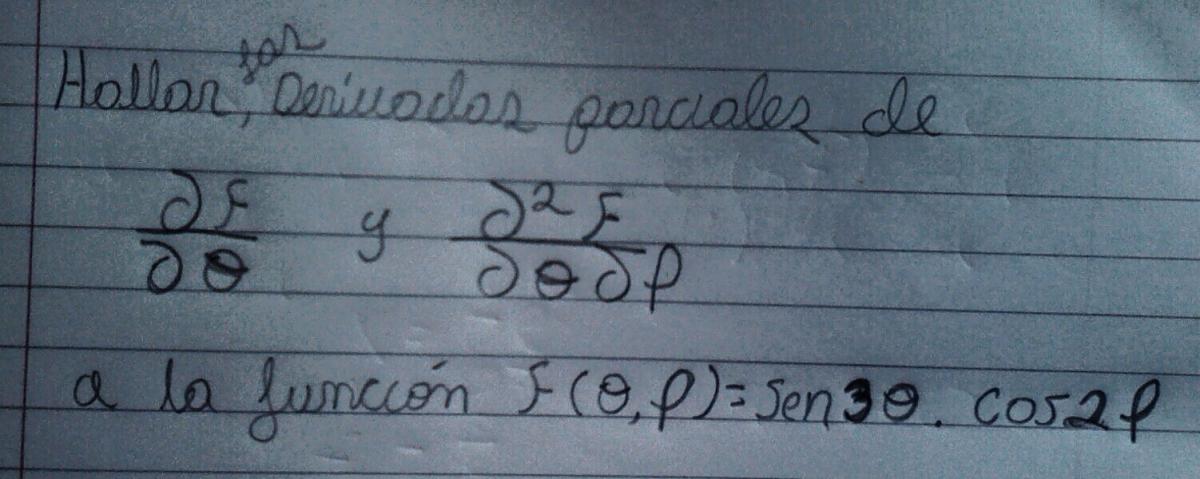 Hallar, las Derivadas parciales de
∂F/∂θ y ∂²F/∂θ∂ρ
a la función F(θ,ρ)=Sen3θ. Cos2ρ